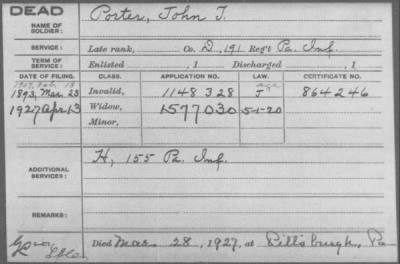 DEAD
NAME OF SOLDIER: Porter, John T.
SERVICE: Late rank, Co. D, 191 Reg't Pa. Inf.
TERM OF SERVICE: Enlisted , 1 Discharged , 1
DATE OF FILING. CLASS. APPLICATION NO. LAW. CERTIFICATE NO.
1893, Mar. 23 Invalid, 1148 328 J 864246
1927 Apr 13 Widow, 1577030 5-1-20
Minor,
ADDITIONAL SERVICES: H, 155 Pa. Inf.
REMARKS:
Died Mar 28, 1927, at Pittsburgh, Pa